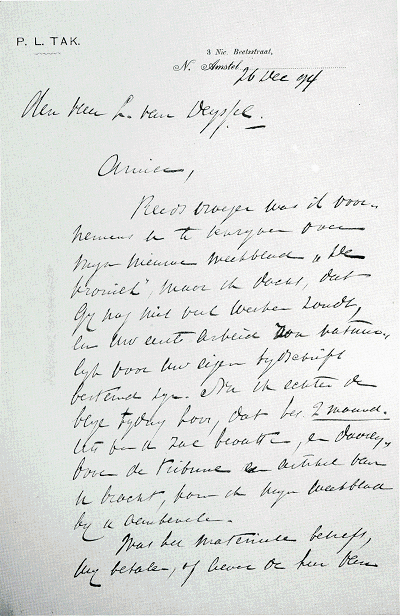 P. L. TAK.
3 Nic. Beetsstraat,
N. Amstel 26 Dec 94
Den Heer L. van Deyssel.
Amice,
Reeds vroeger was ik voor-
nemens u te over
mijn nieuwe weekblad „De
Kroniek", maar ik dacht, dat
gij nog niet veel werken zoudt,
en uw eerste arbeid zou natuur-
lijk voor uw eigen tijdschrift
bestemd zijn. Nu ik echter de
blijde tijding hoor, dat het 2 maand.
iets van u zal bevatten, en
de tribune artikel van
u bracht, kom ik mijn weekblad
bij u aanbevelen.
Wat het materieele betreft,
wij betalen, of liever de heer